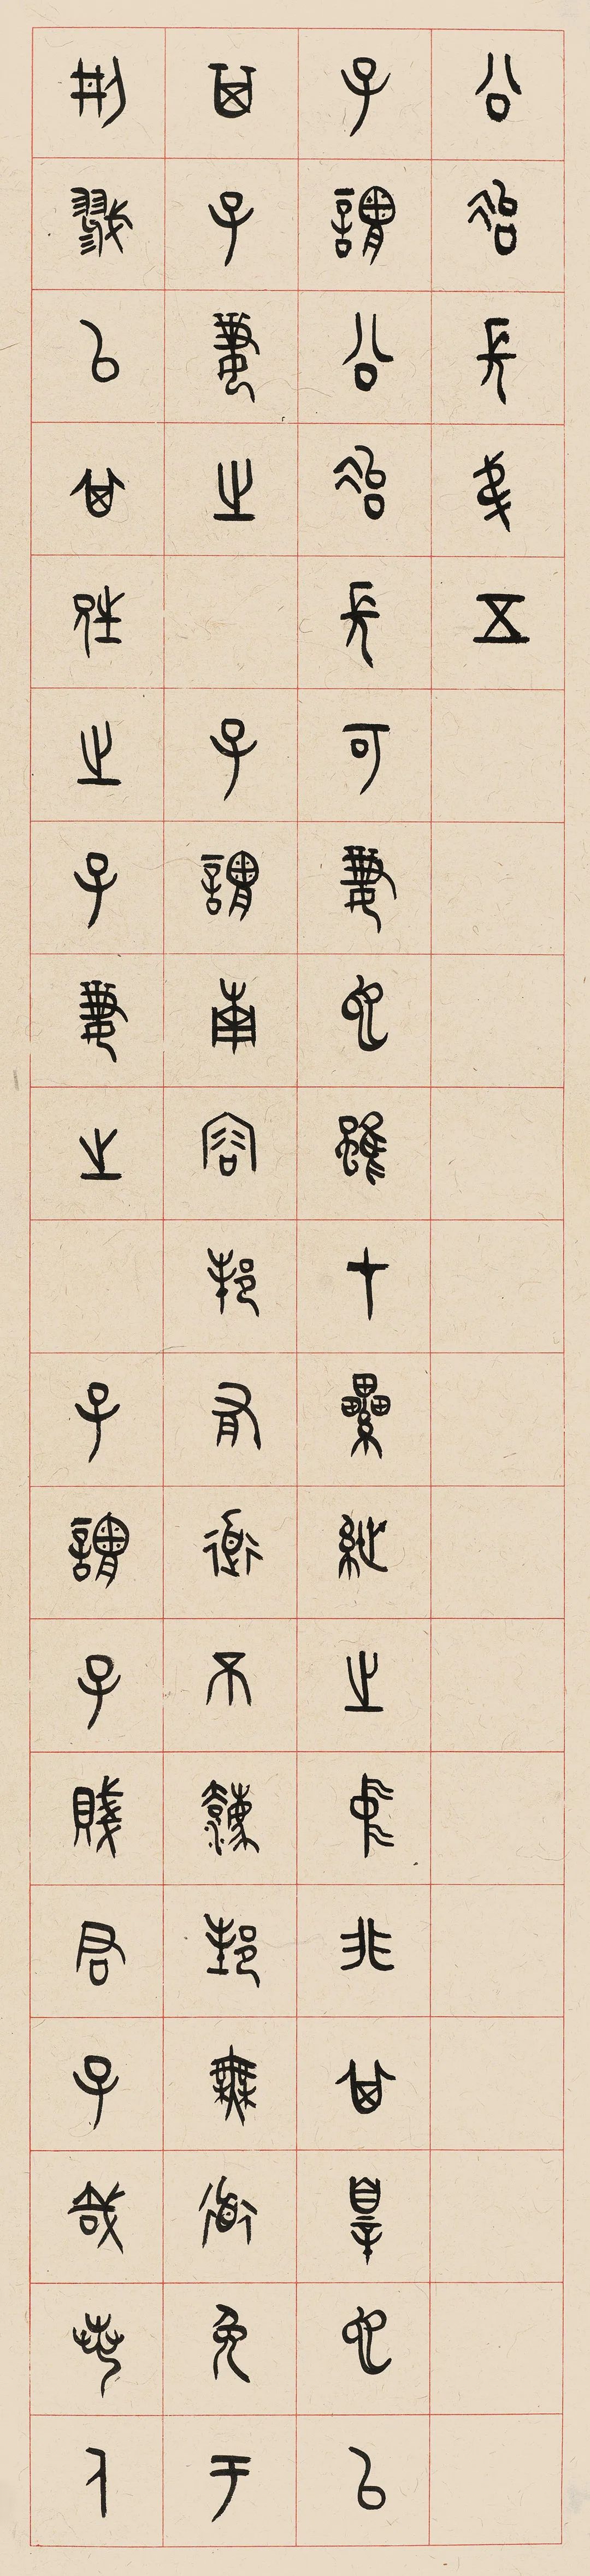 公冶長弟五
子謂公冶長可妻也雖在纍紲之中非其辠也以
其子妻之 子謂南容邦有道不廢邦無道免于
刑戮以其兄之子妻之 子謂子賤君子哉若人